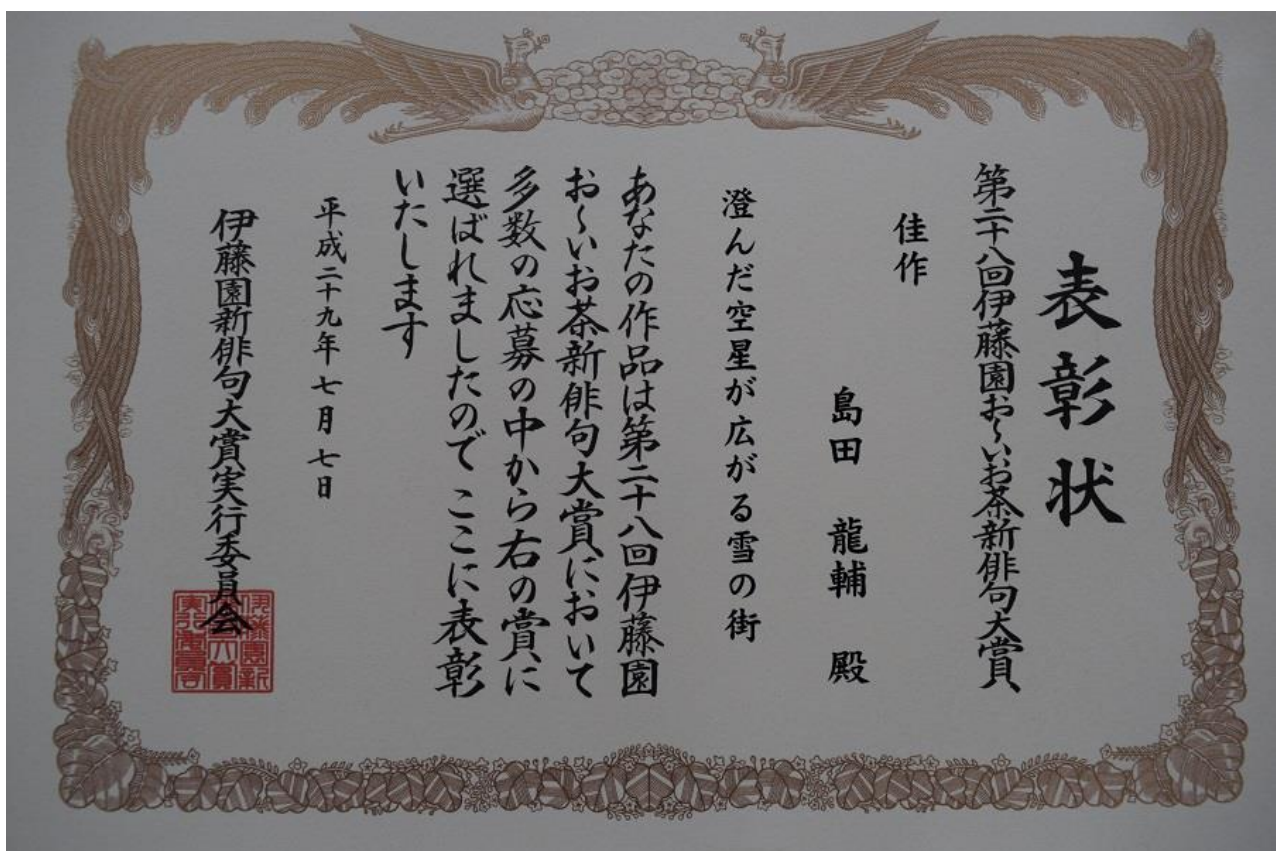 表彰状
第二十八回伊藤園お〜いお茶新俳句大賞
佳作
島田 龍輔 殿
澄んだ空星が広がる雪の街
あなたの作品は第二十八回伊藤園
お〜いお茶新俳句大賞において
多数の応募の中から右の賞に
選ばれましたので ここに表彰
いたします
平成二十九年七月七日
伊藤園新俳句大賞実行委員会